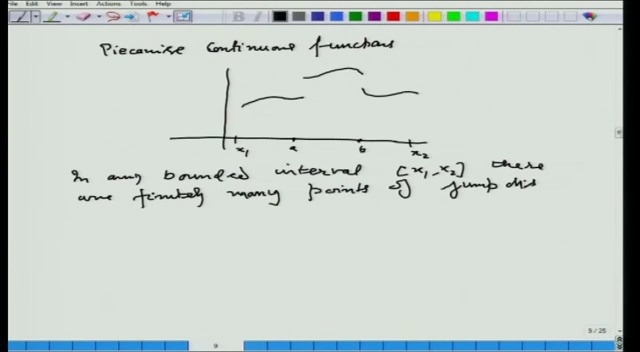 File Edit View Insert Actions Tools Help
Piecewise Continuous functions
x1 a b x2
In any bounded interval [x1, x2] there
are finitely many points of jump dis
9/25
9